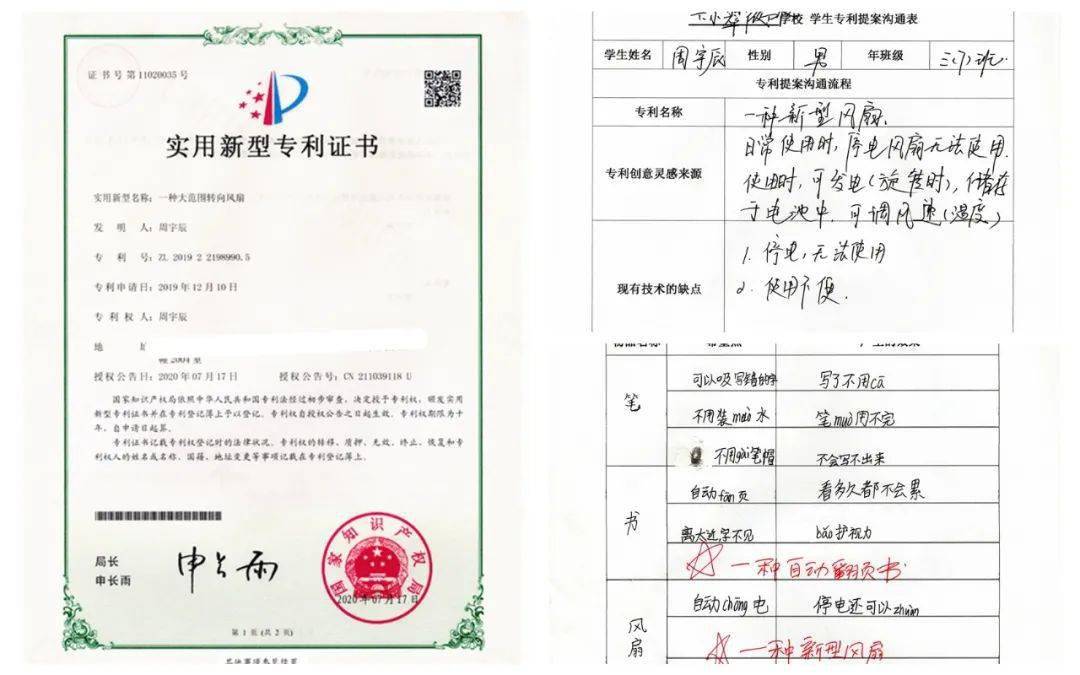 证书号第11020035号
实用新型专利证书
实用新型名称：一种大范围转向风扇
发明人：周宇辰
专利号：ZL 2019 2 2198990.5
专利申请日：2019年12月10日
专利权人：周宇辰
地
授权公告日：2020年07月17日 授权公告号：CN 211039118 U
国家知识产权局依照中华人民共和国专利法经过初步审查，决定授予专利权，颁发实用
新型专利证书并在专利登记簿上予以登记。专利权自授权公告之日起生效。专利权期限为十
年，自申请日起算。
专利证书记载专利权登记时的法律状况。专利权的转移、质押、无效、终止、恢复和专
利权人的姓名或名称、国籍、地址变更等事项记载在专利登记簿上。
局长
申长雨
申长雨
国家知识产权局
2020年07月17日
第1页(共2页)
学校 学生专利提案沟通表
学生姓名 周宇辰 性别 男 年班级 三(7)班.
专利提案沟通流程
专利名称 一种新型风扇.
专利创意灵感来源
日常使用时，停电风扇无法使用.
使用时，可发电(旋转时)，储存
于电池中，可调风速(温度)
现有技术的缺点
1. 停电，无法使用
2. 使用不便.
笔
可以吸写错的字 写了不用cā
不用装mò水 笔muò用不完
不用gài笔帽 不会写不出来
书
自动fān页 看多久都不会累
离太近字不见 bǎo护视力
☆一种自动翻页书
风扇
自动chōng电 停电还可以zhuàn
☆一种新型风扇